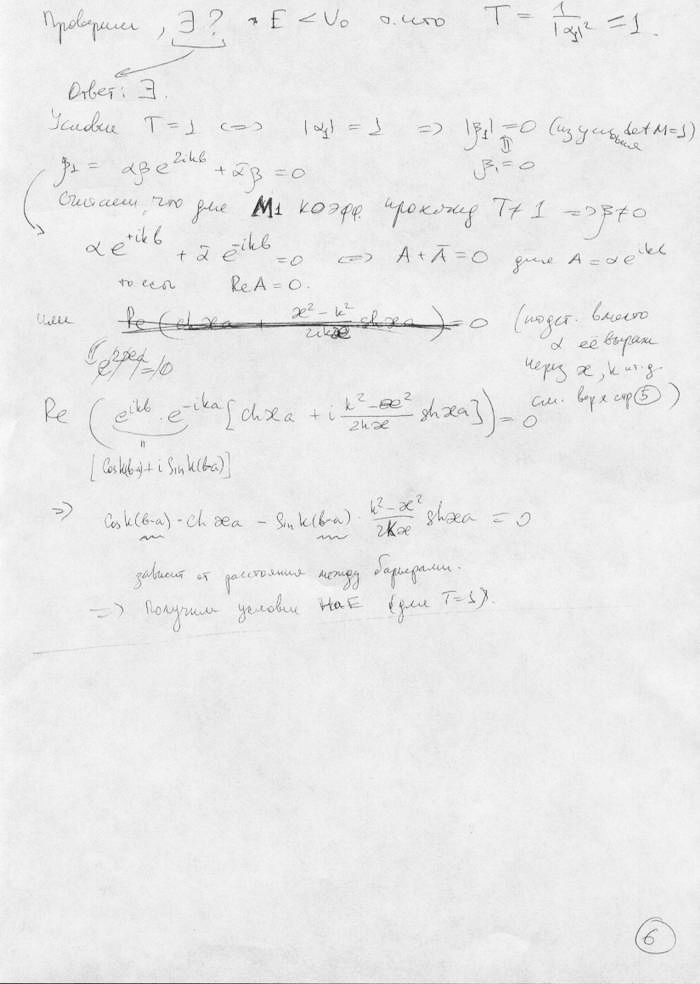 Проверим, ∃? E < V₀ т.что T = 1/|α₁|² = 1.
Ответ: ∃.
Условие T = 1 <=> |α₁| = 1 => |β₁| = 0 (из условия det M = 1)
β₁ = αβe^{2ikb} + ᾱβ = 0
β₁ = 0
Считаем, что для M₁ коэфф. прохожд T ≠ 1 => β ≠ 0
αe^{+ikb} + ᾱe^{-ikb} = 0 <=> A + Ā = 0 для A = αe^{ikb}
то есть Re A = 0.
или
(подст. вместо
α её выраж
через æ, k и т.д.
см. верх стр ⑤)
Re (e^{ikb} · e^{-ika} [ch æa + i (k² - æ²)/(2kæ) sh æa]) = 0
[cos k(b-a) + i sin k(b-a)]
=> cos k(b-a) · ch æa - sin k(b-a) · (k² - æ²)/(2kæ) sh æa = 0
зависит от расстояния между барьерами.
=> Получим условие на E {для T = 1}.
6